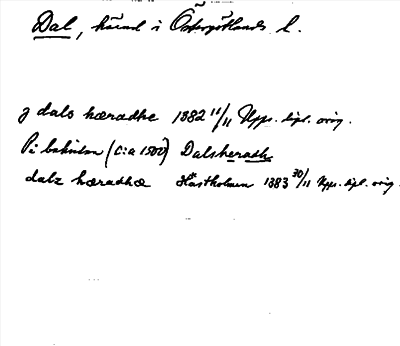 Dal, härad i Östergötlands l.
j dals hæradhe 1382 11/11 Upps. dipl. orig.
På baksidan (c:a 1500) Dalsheradh
dalz hæradhæ Hästholmen 1383 30/11 Upps. dipl. orig.